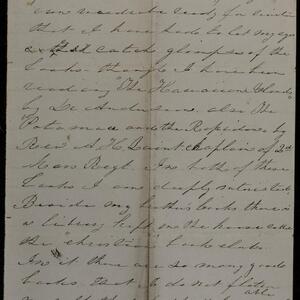 that I have had to let my eyes
catch glimpses of the
books - though I have been
reading "The Hawaiian Islands"
by Dr Anderson, also "The
Potomac and the Rapidan" by
Rev. A. H. Quint chaplain of 2d
Mass Regt. In both of these
books I am deeply interested.
Beside my brother's books there is
a library kept in the house called
the "christian" book club.
In it there are so many good
books that I do not
able